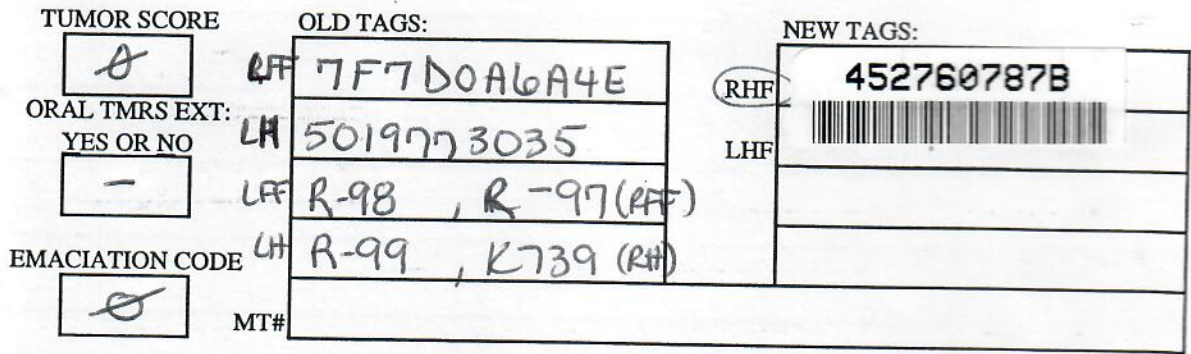 TUMOR SCORE
0
ORAL TMRS EXT:
YES OR NO
-
EMACIATION CODE
0
OLD TAGS:
RFF 7F7D0A6A4E
LH 5019773035
LFF R-98 , R-97 (RFF)
LH R-99 , K739 (RH)
MT#
NEW TAGS:
RHF 452760787B
LHF